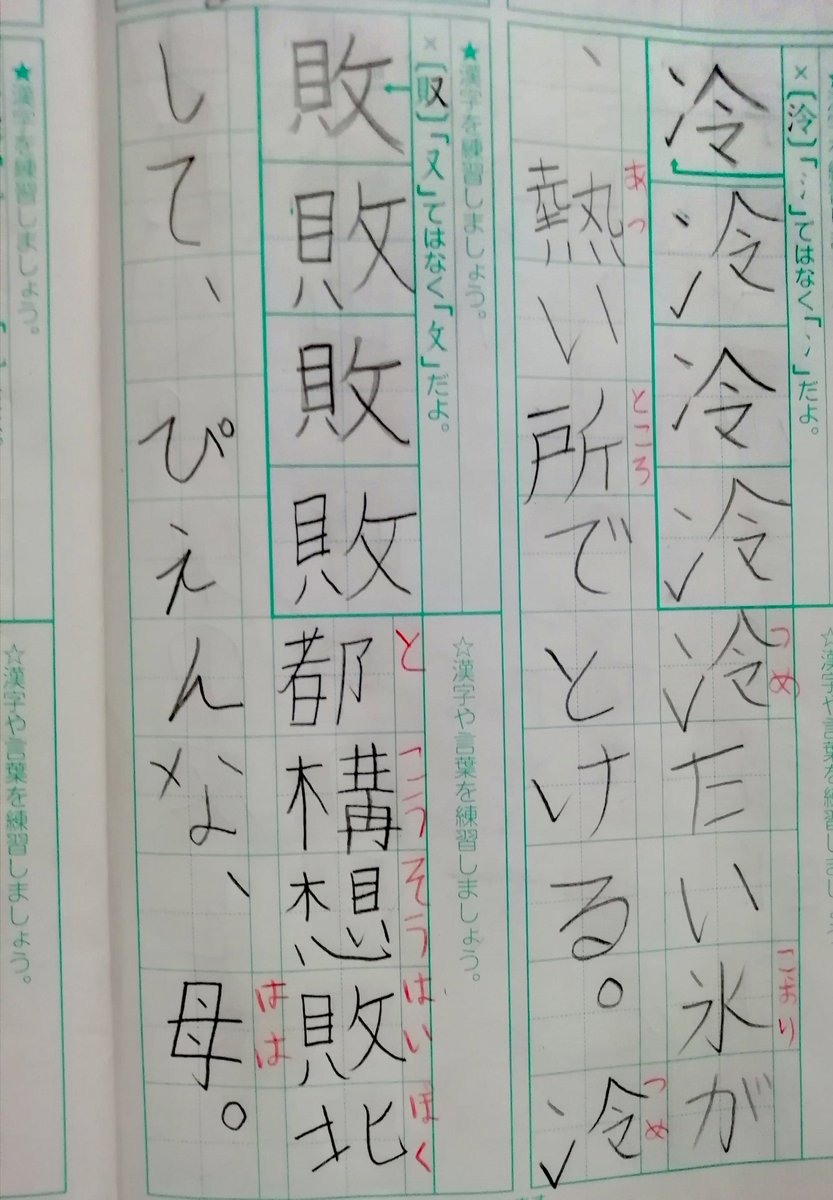 ×〔泠〕「氵」ではなく「冫」だよ。
つめ こおり
冷冷冷冷冷たい氷が
あつ ところ つめ
、熱い所でとける。冷
★漢字を練習しましょう。
☆漢字や言葉を練習しましょう。
「又」ではなく「攵」だよ。
と こうそう はいぼく
敗敗敗敗都構想敗北
はは
して、ぴえんな、母。
★漢字を練習しましょう。
☆漢字や言葉を練習しましょう。